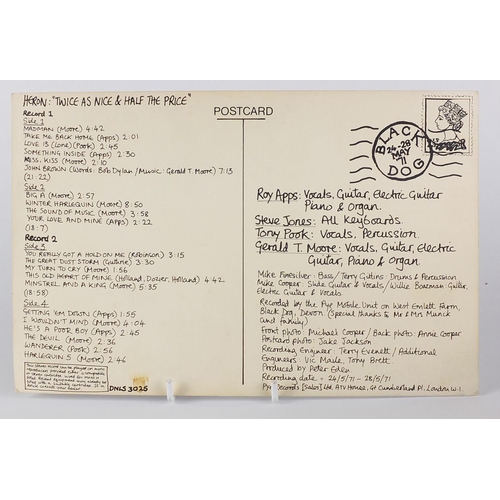 HERON: "TWICE AS NICE & HALF THE PRICE"
POSTCARD
Record 1
Side 1
MADMAN (Moore) 4:42
TAKE ME BACK HOME (Apps) 2:01
LOVE 13 (Lone) (Pook) 2:45
SOMETHING INSIDE (Apps) 2:30
MISS KISS (Moore) 2:10
JOHN BROWN (Words: Bob Dylan / Music: Gerald T. Moore) 7:13
(21:22)
Side 2
BIG A (Moore) 2:57
WINTER HARLEQUIN (Moore) 8:50
THE SOUND OF MUSIC (Moore) 3:58
YOUR LOVE AND MINE (Apps) 2:22
(18:7)
Record 2
Side 3
YOU REALLY GOT A HOLD ON ME (Robinson) 3:15
THE GREAT DUST STORM (Guthrie) 3:30
MY TURN TO CRY (Moore) 1:56
THIS OLD HEART OF MINE (Holland, Dozier, Holland) 4:42
MINSTREL AND A KING (Moore) 5:35
(18:58)
Side 4
GETTING 'EM DOWN (Apps) 1:55
I WOULDN'T MIND (Moore) 4:04
HE'S A POOR BOY (Apps) 2:45
THE DEVIL (Moore) 2:36
WANDERER (Pook) 2:56
HARLEQUIN 5 (Moore) 2:46
DNLS 3025
BLACK DOG
24-28
MAY
71
Roy Apps: Vocals, Guitar, Electric Guitar
Piano & Organ.
Steve Jones: All Keyboards.
Tony Pook: Vocals, Percussion.
Gerald T. Moore: Vocals, Guitar, Electric
Guitar, Piano & Organ
Mike Finesilver: Bass / Terry Gittins: Drums & Percussion
Mike Cooper: Slide Guitar & Vocals / Willie Boatman: Guitar,
Electric Guitar & Vocals.
Recorded by the Pye Mobile Unit on West Emlett Farm,
Black Dog, Devon (Special thanks to Mr & Mrs Manick
and family)
Front photo: Michael Cooper / Back photo: Annie Cooper
Postcard photo: Jake Jackson
Recording Engineer: Terry Evenett / Additional
Engineers: Vic Maile, Tony Brett
Produced by Peter Eden
Recording date = 24/5/71 - 28/5/71
Pye Records (Sales) Ltd. ATV House, Gt Cumberland Pl. London W.1.